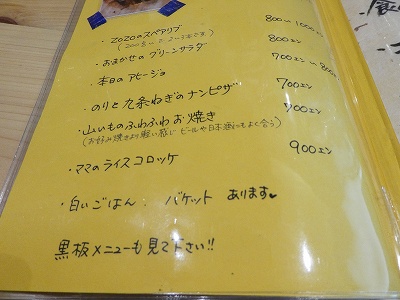 ・ZOZOのスペアリブ 800い1000エン
・おまかせのグリーンサラダ 800エン
・本日のアヒージョ 700エンい800
・のりと九条ねぎのナンピザ 700エン
・山いものふわふわお焼き 700エン
(お好み焼きより軽い感じ ビールや日本酒にもよく合う)
・ママのライスコロッケ 900エン
・白いごはん バケット あります
黒板メニューも見て下さい!!